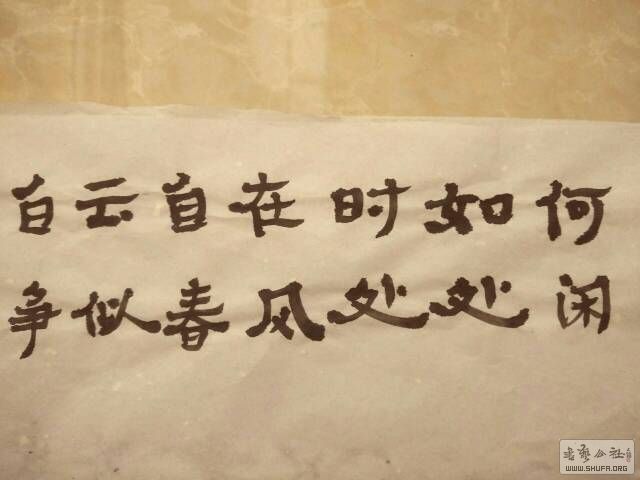 白云自在时如何
争似春风处处闲
书艺公社
WWW.SHUFA.ORG